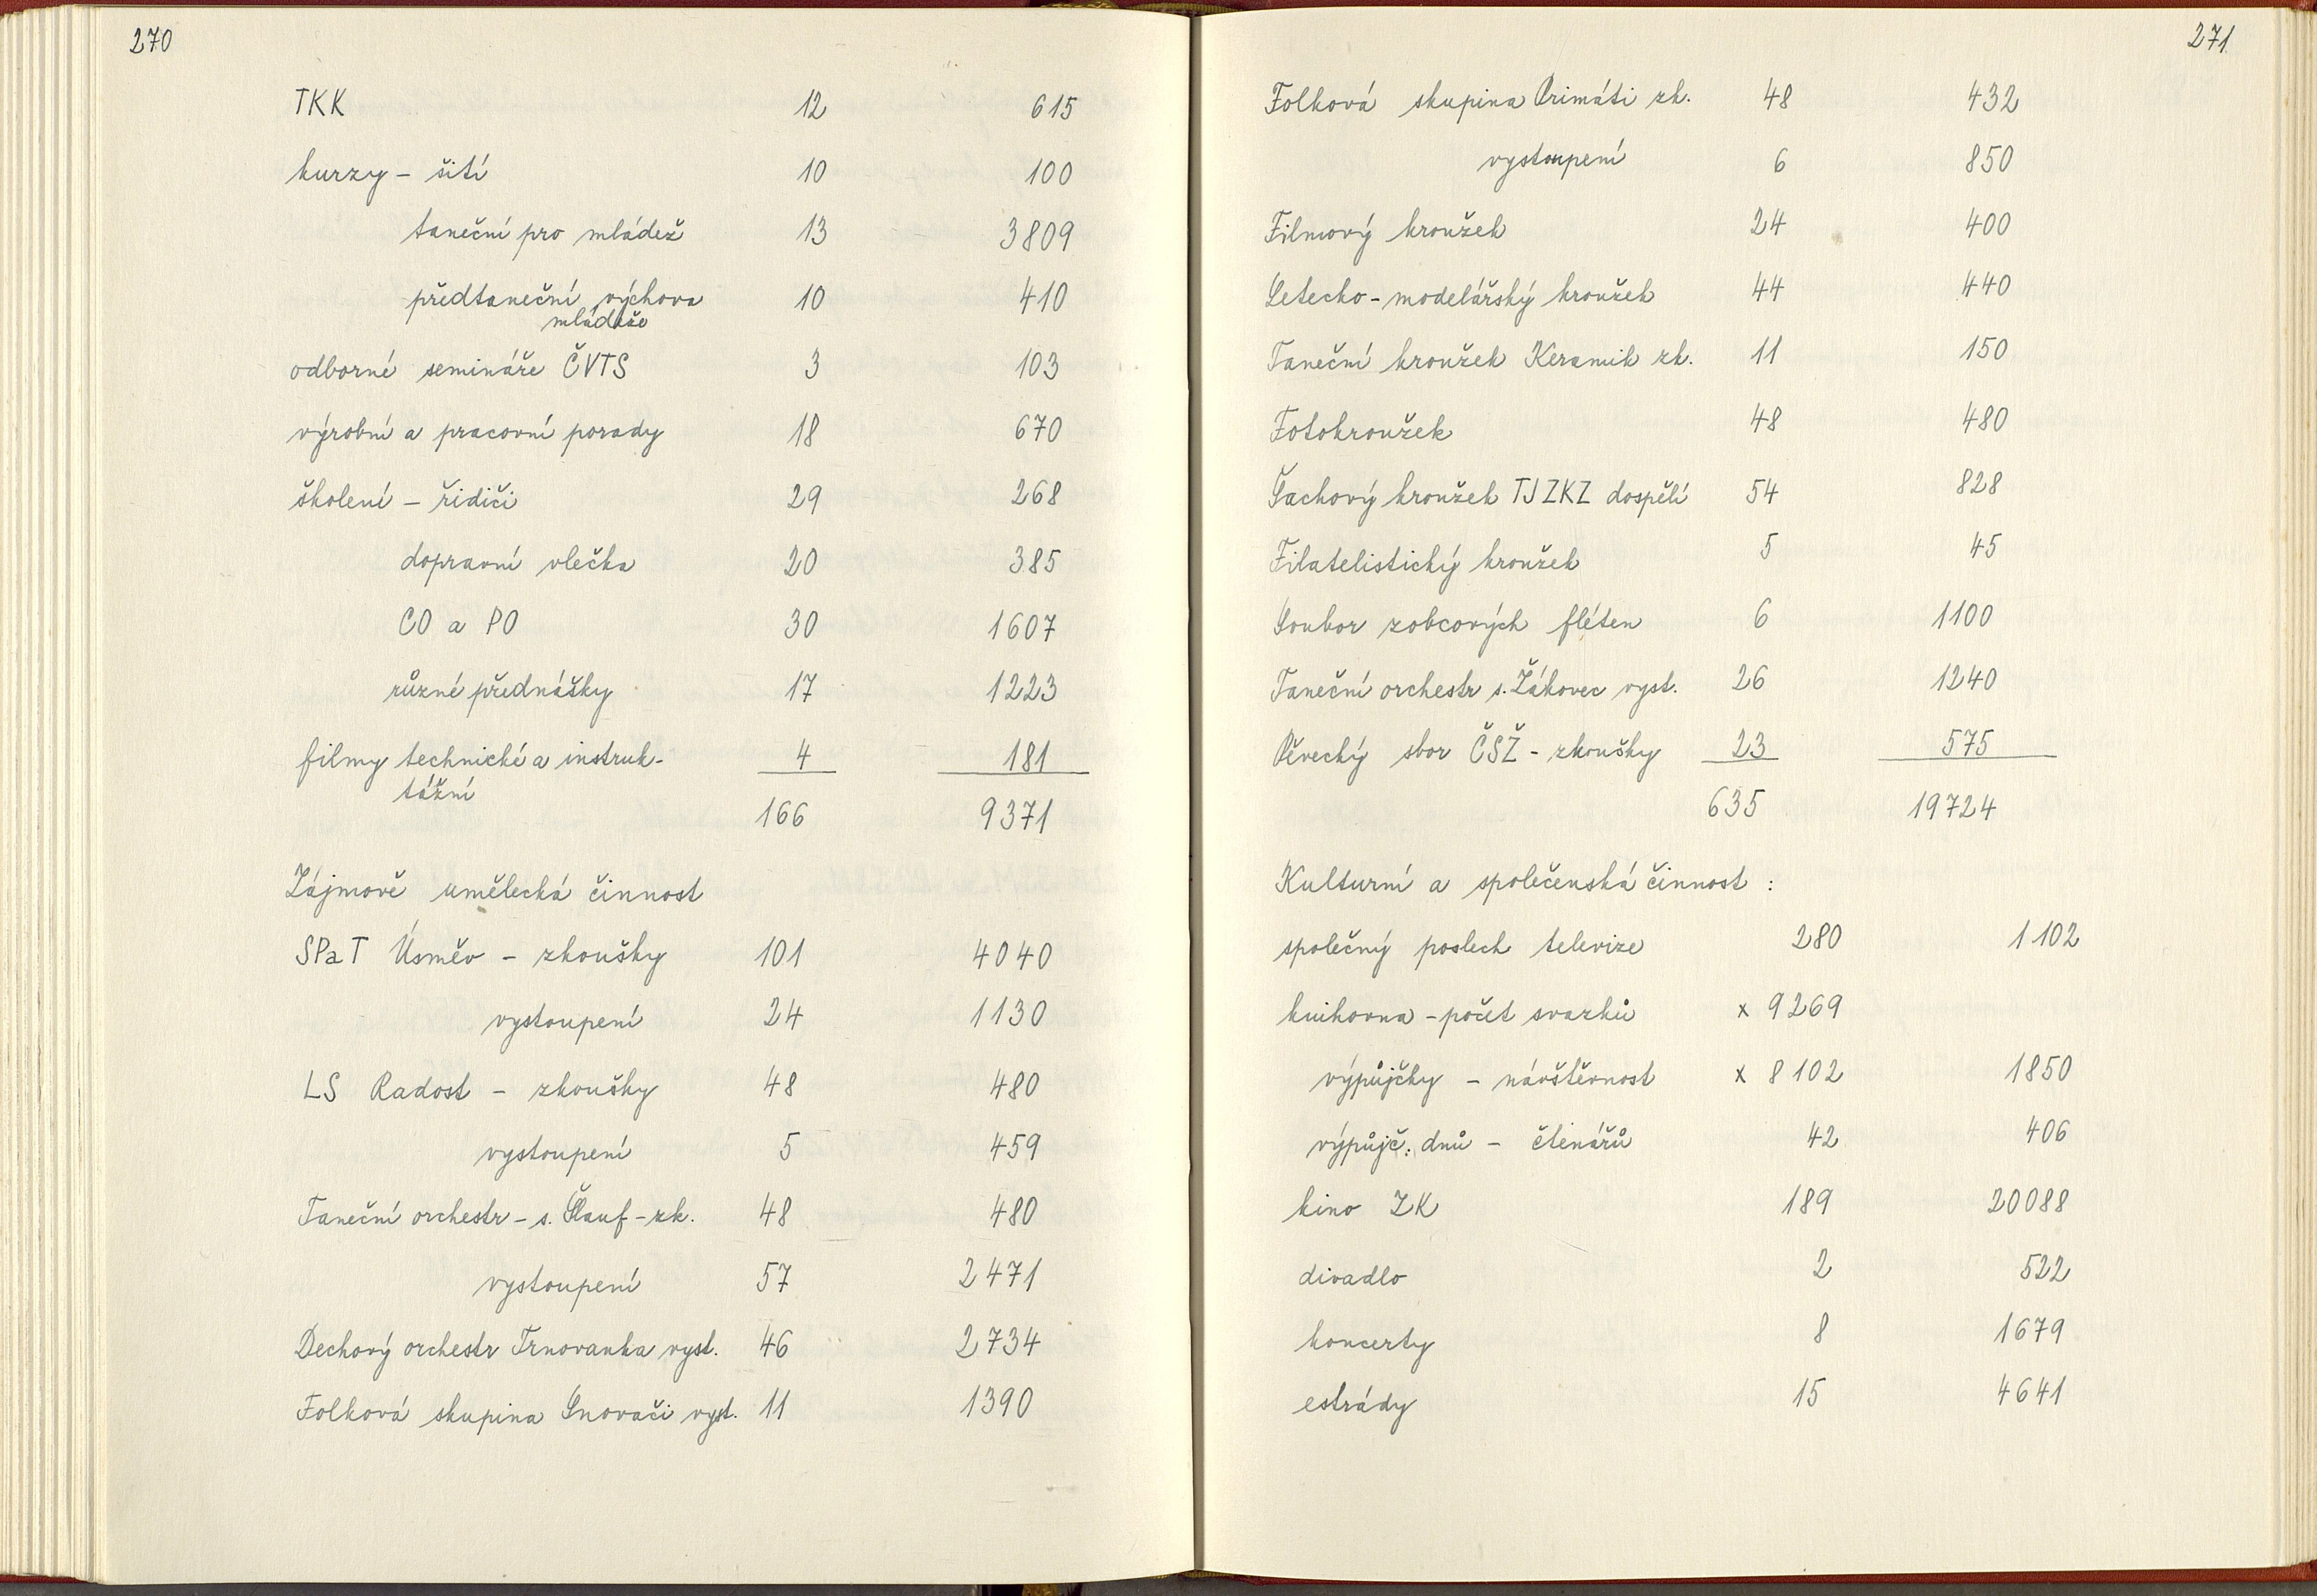 270
TKK 12 615
kurzy - šití 10 100
taneční pro mládež 13 3809
předtaneční výchova 10 410
mládeže
odborné semináře ČVTS 3 103
výrobní a pracovní porady 18 670
školení - řidiči 29 268
dopravní vlečka 20 385
CO a PO 30 1607
různé přednášky 17 1223
filmy technické a instruk- 4 181
tážní
166 9371
Zájmově umělecká činnost
SPaT Úsměv - zkoušky 101 4040
vystoupení 24 1130
LS Radost - zkoušky 48 480
vystoupení 5 459
Taneční orchestr - s. Šlauf - zk. 48 480
vystoupení 57 2471
Dechový orchestr Trnovanka vyst. 46 2734
Folková skupina Snovači vyst. 11 1390
271
Folková skupina Primáti zk. 48 432
vystoupení 6 850
Filmový kroužek 24 400
Letecko - modelářský kroužek 44 440
Taneční kroužek Keramik zk. 11 150
Fotokroužek 48 480
Šachový kroužek TJ ZKZ dospělí 54 828
Filatelistický kroužek 5 45
Soubor zobcových fléten 6 1100
Taneční orchestr s. Žákovec vyst. 26 1240
Pěvecký sbor ČSŽ - zkoušky 23 575
635 19724
Kulturní a společenská činnost :
společný poslech televize 280 1102
knihovna - počet svazků x 9269
výpůjčky - návštěvnost x 8102 1850
výpůjč. dnů - čtenářů 42 406
kino ZK 189 20088
divadlo 2 522
koncerty 8 1679
estrády 15 4641